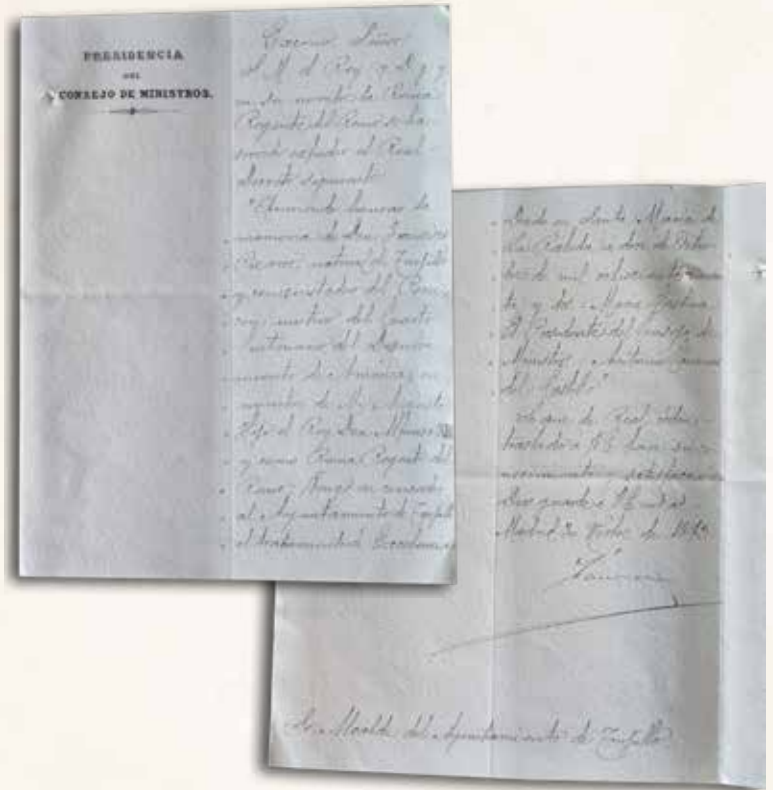 PRESIDENCIA
DEL
CONSEJO DE MINISTROS.
Excmo Señor
S. M. el Rey q. D. g. y
en su nombre la Reina
Regente del Reino se ha
servido expedir el Real
decreto siguiente
"Queriendo honrar la
memoria de Don Francisco
Pizarro, natural de Trujillo
y conquistador del Perú,
con motivo del cuarto
Centenario del Descubri-
miento de America, en
nombre de Mi Augusto
Hijo el Rey Don Alfonso XIII
y como Reina Regente del
Reino, Vengo en conceder
al Ayuntamiento de Trujillo
el tratamiento de Excelencia
Dado en Santa María de
la Rábida a doce de Octu-
bre de mil ochocientos noven-
ta y dos - María Cristina -
El Presidente del Consejo de
Ministros, Antonio Cánovas
del Castillo"
Lo que de Real orden
traslado a V. E. para su co-
nocimiento y satisfacción
Dios guarde a V. E.
Madrid de 1892
Sr. Alcalde del Ayuntamiento de Trujillo